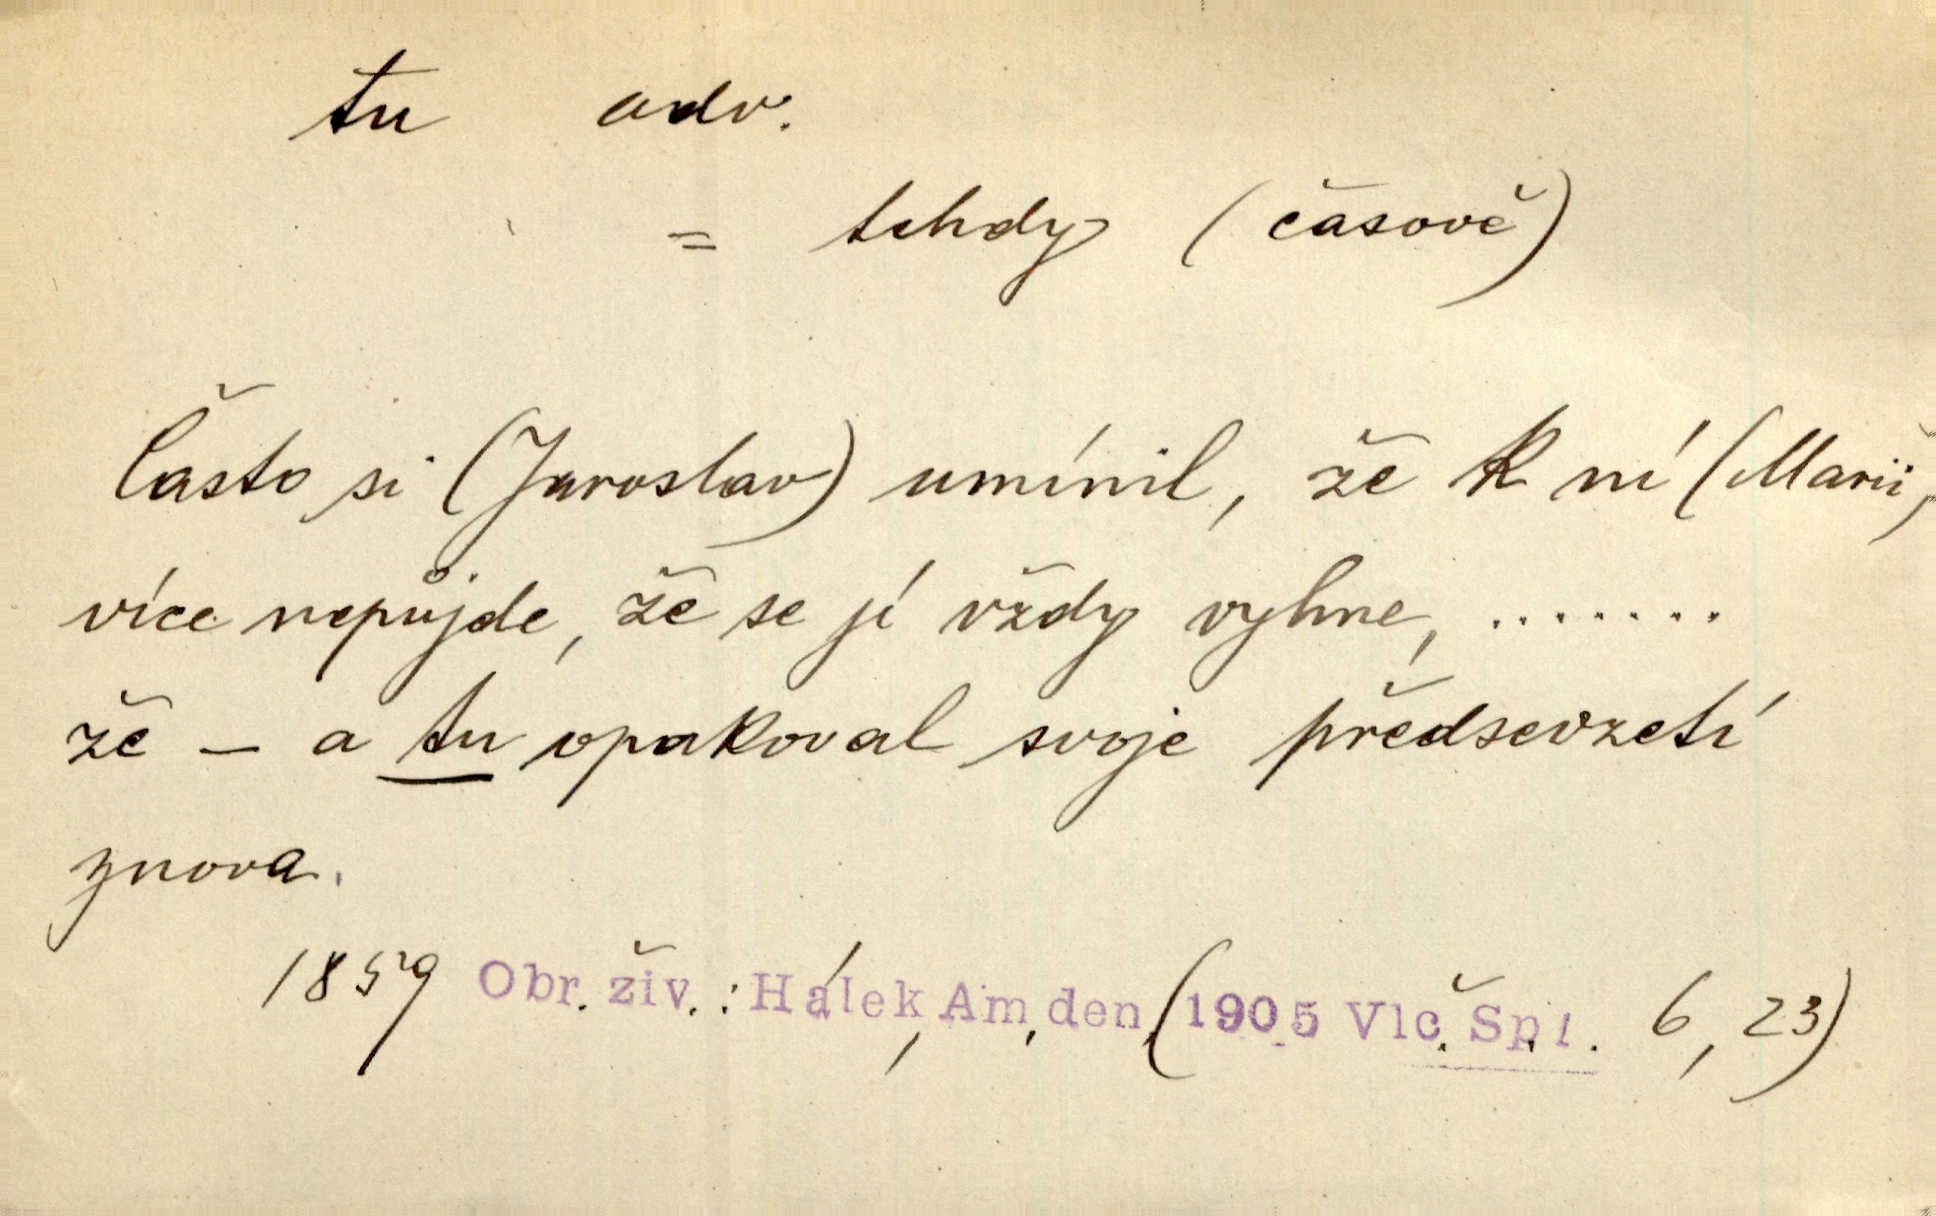 tu adv.
= tehdy (časově)
Často si (Jaroslav) umínil, že k ní (Marii)
více nepůjde, že se jí vždy vyhne, .......
že – a tu opakoval svoje předsevzetí
znova.
1859 Obr. živ.: Hálek, Am, den, (1905 Vlč. Sp. 1. 6, 23)